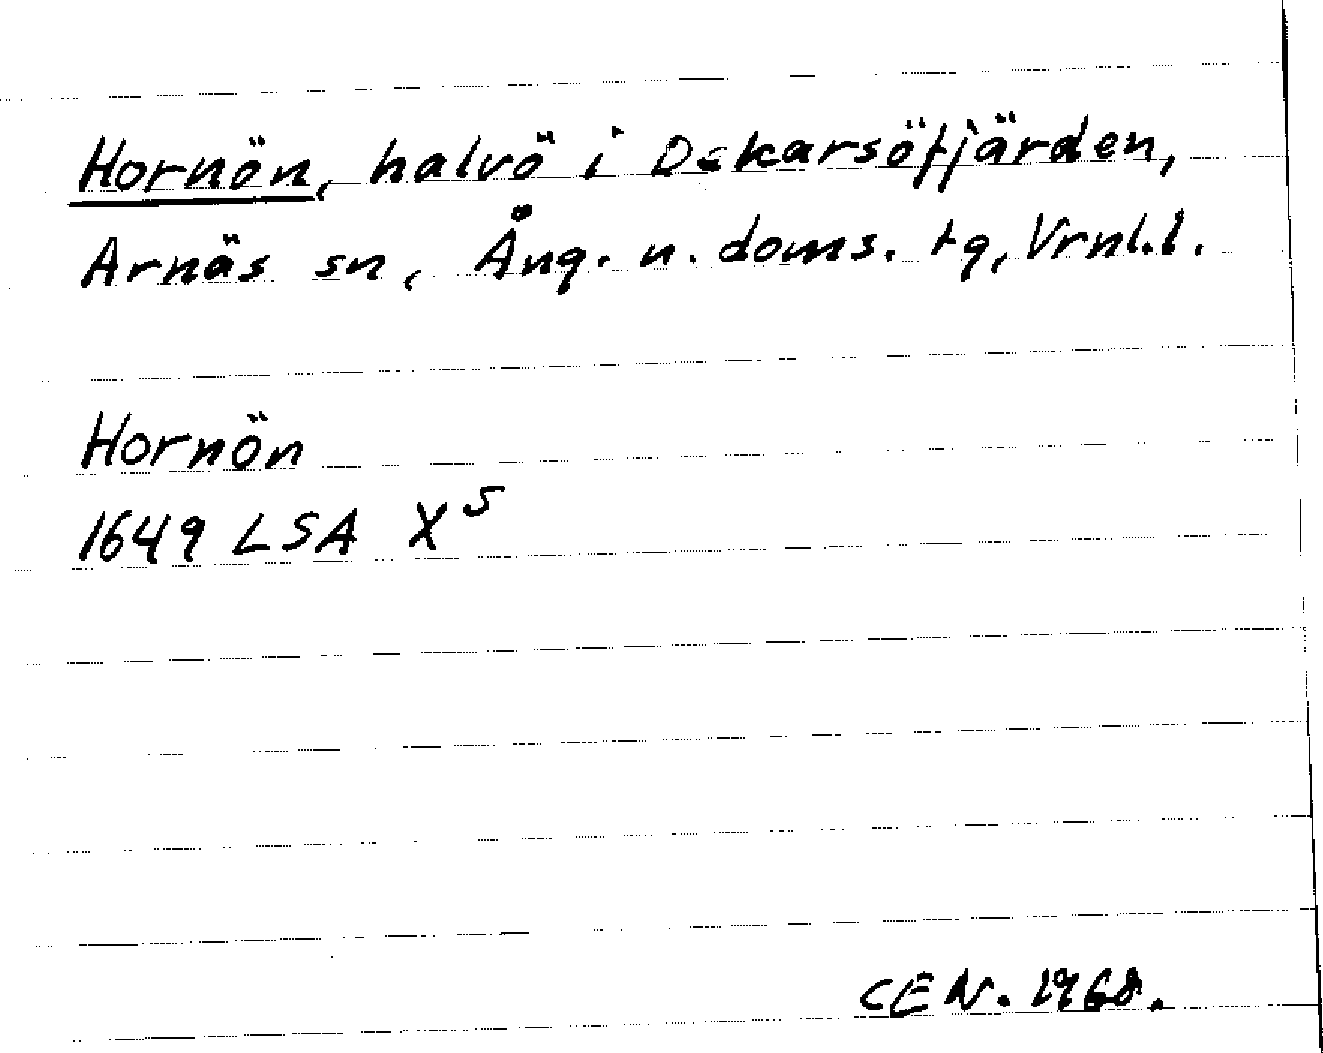 Hornön, halvö i Dekarsöfjärden,
Arnäs sn, Ång. n. doms. tg, Vrnl.l.
Hornön
1649 LSA X⁵
CEN. 1968.